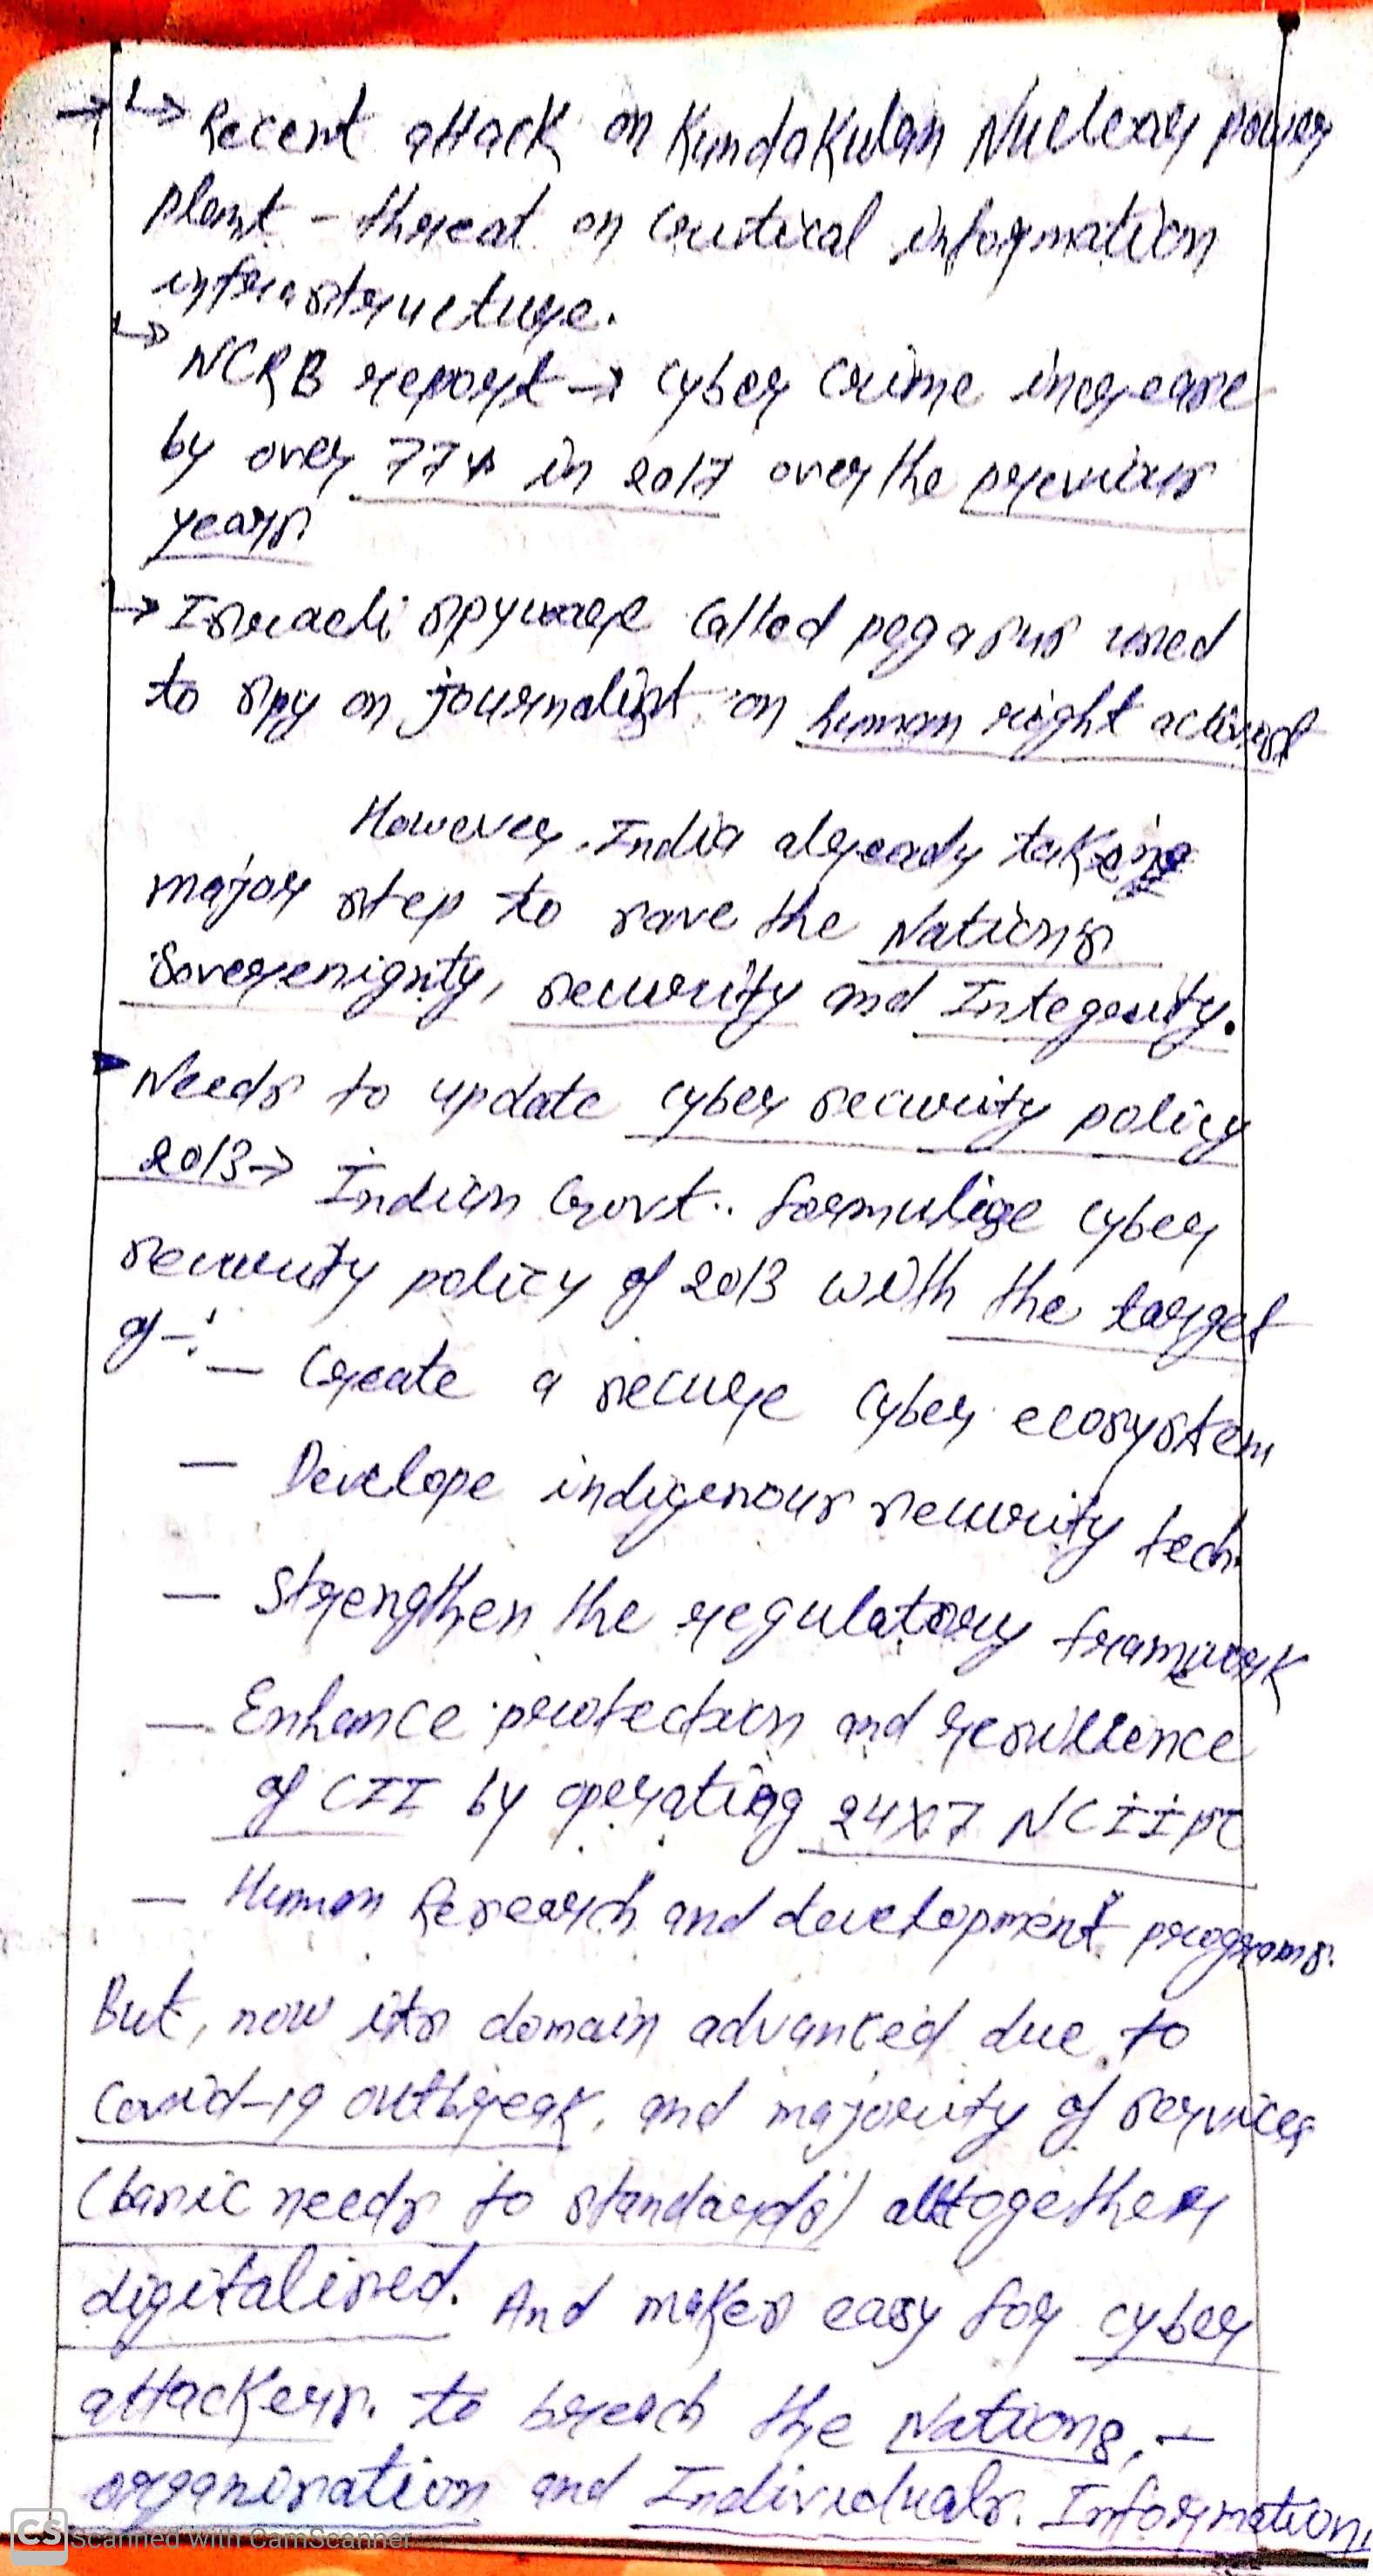 → ↳ Recent attack on Kundakulam Nuclear power
plant - threat on critical information
infrastructure.
↳ NCRB report → cyber crime increase
by over 77% in 2017 over the previous
years
↳ Israeli spyware called pegasus used
to spy on journalist on human right activist
However, India already taking
major step to save the Nations
Soverenignty, security and Integrity.
▸ Needs to update cyber security policy
2013 → Indian Govt.. formulise cyber
security policy of 2013 with the target
of -:
— Create a secure cyber ecosystem
— Develope indigenous security tech.
— Strengthen the regulatory framework
— Enhance protection and resillience
of CII by operating 24x7 NCIIPC
— Human Research and development programs.
But, now its domain advanced due to
Covid-19 outbreak, and majority of services
(basic needs to standards) alltogether
digitalised. And makes easy for cyber
attackers. to breach the Nations, —
organisation and Individuals. Information,
CS Scanned with CamScanner